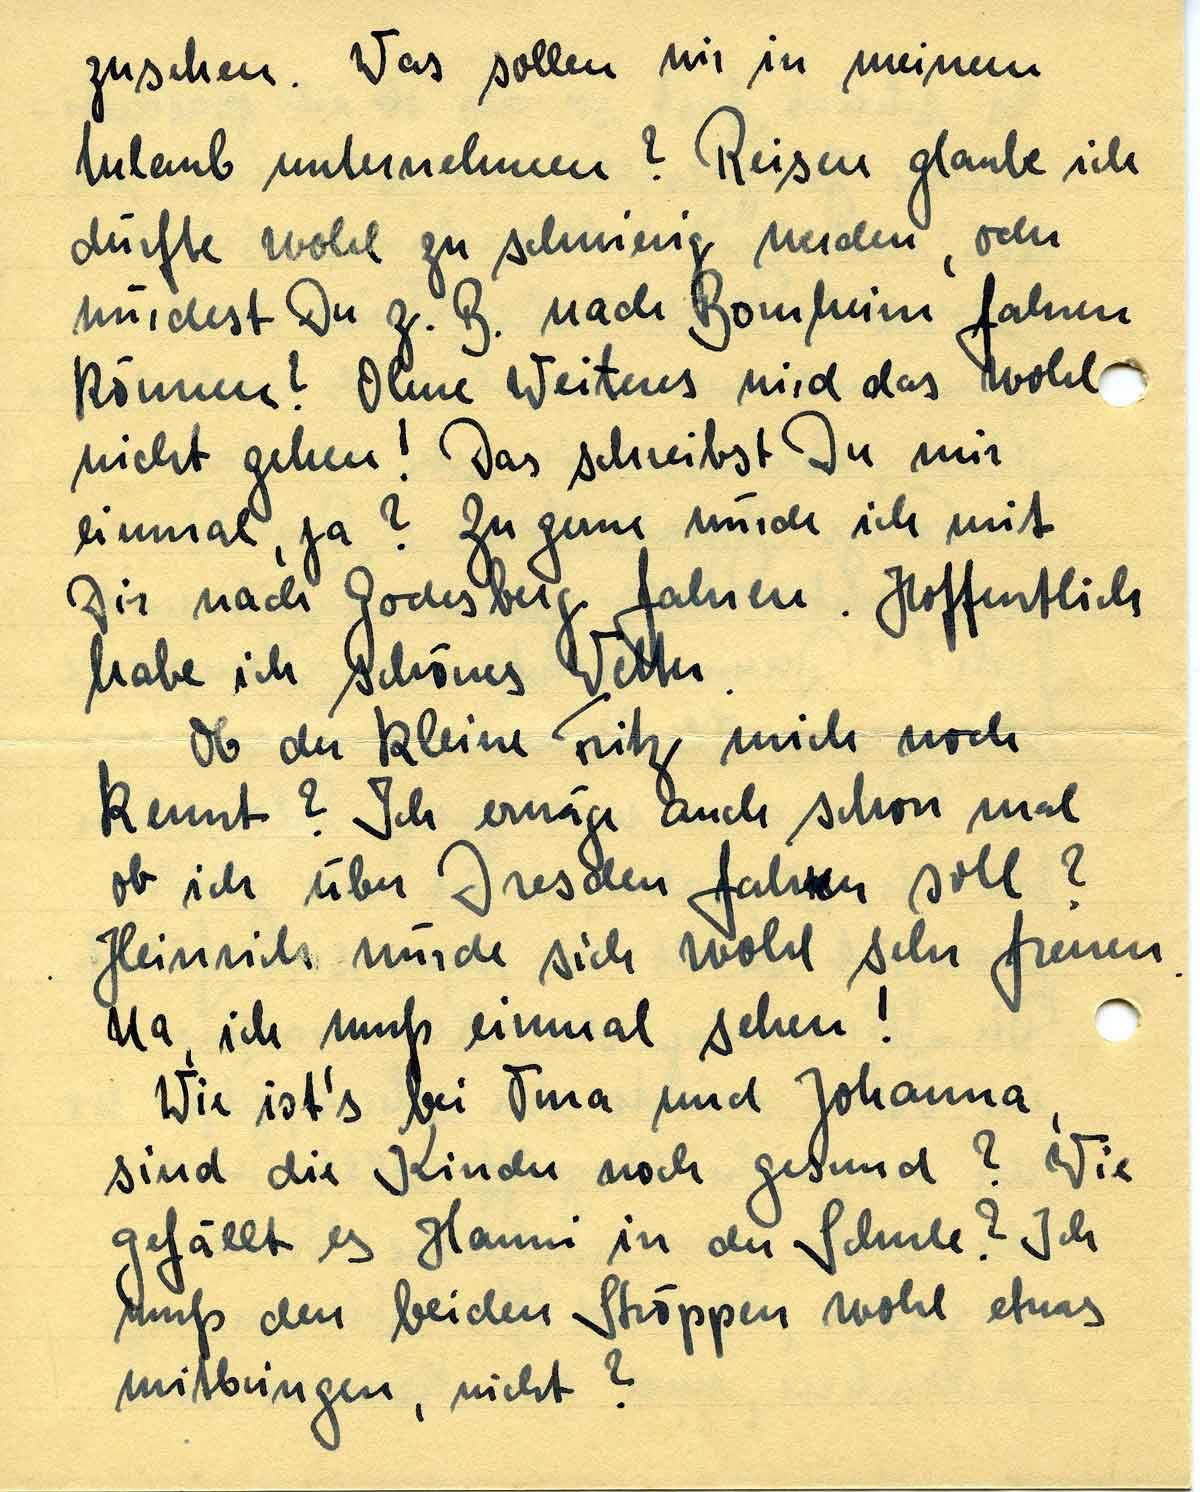 zusehen. Was sollen wir in meinem
Urlaub unternehmen? Reisen glaube ich
dürfte wohl zu schwierig werden, oder
würdest Du z. B. nach Bornheim fahren
können? Ohne Weiteres wird das wohl
nicht gehen! Das schreibst Du mir
einmal, ja? Zu gerne würde ich mit
Dir nach Godesberg fahren. Hoffentlich
habe ich schönes Wetter.
Ob der kleine Fritz mich noch
kennt? Ich erwäge auch schon mal
ob ich über Dresden fahren soll?
Heinrich würde sich wohl sehr freuen.
Na, ich muß einmal sehen!
Wie ist's bei und Johanna,
sind die Kinder noch gesund? Wie
gefällt es Hanni in der Schule? Ich
muß den beiden Ströppen wohl etwas
mitbringen, nicht?